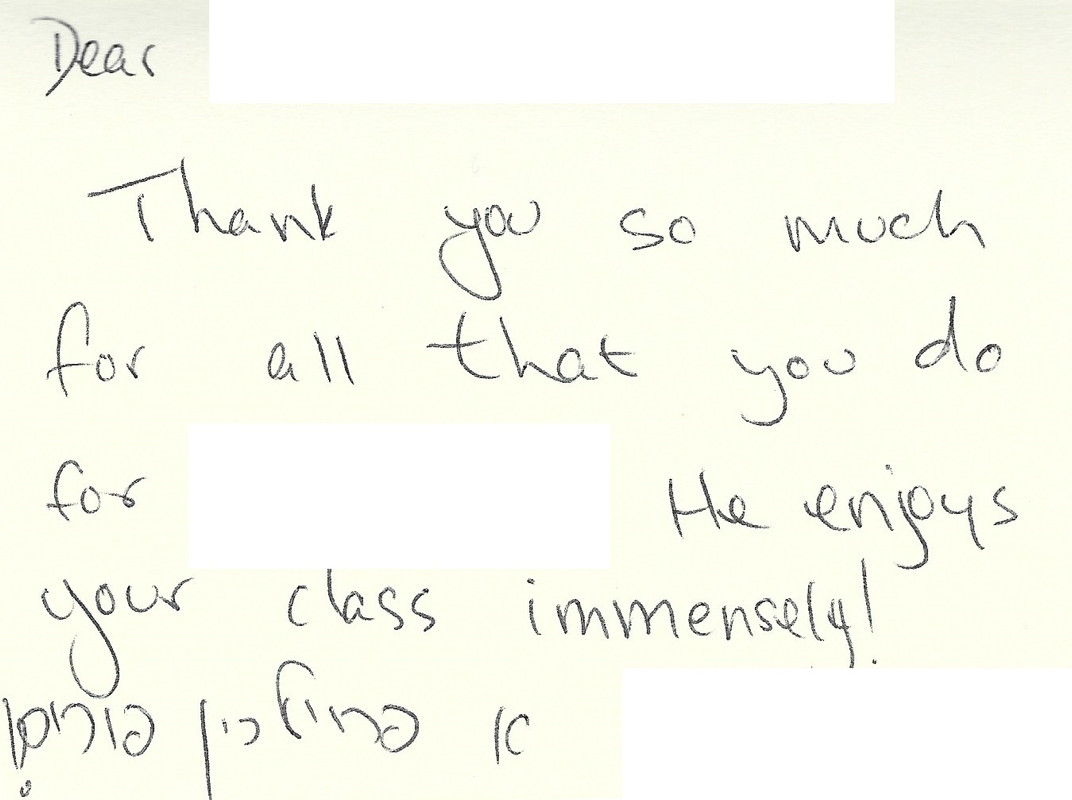 Dear
Thank you so much
for all that you do
for He enjoys
your class immensely!
א פרילכין פורים!